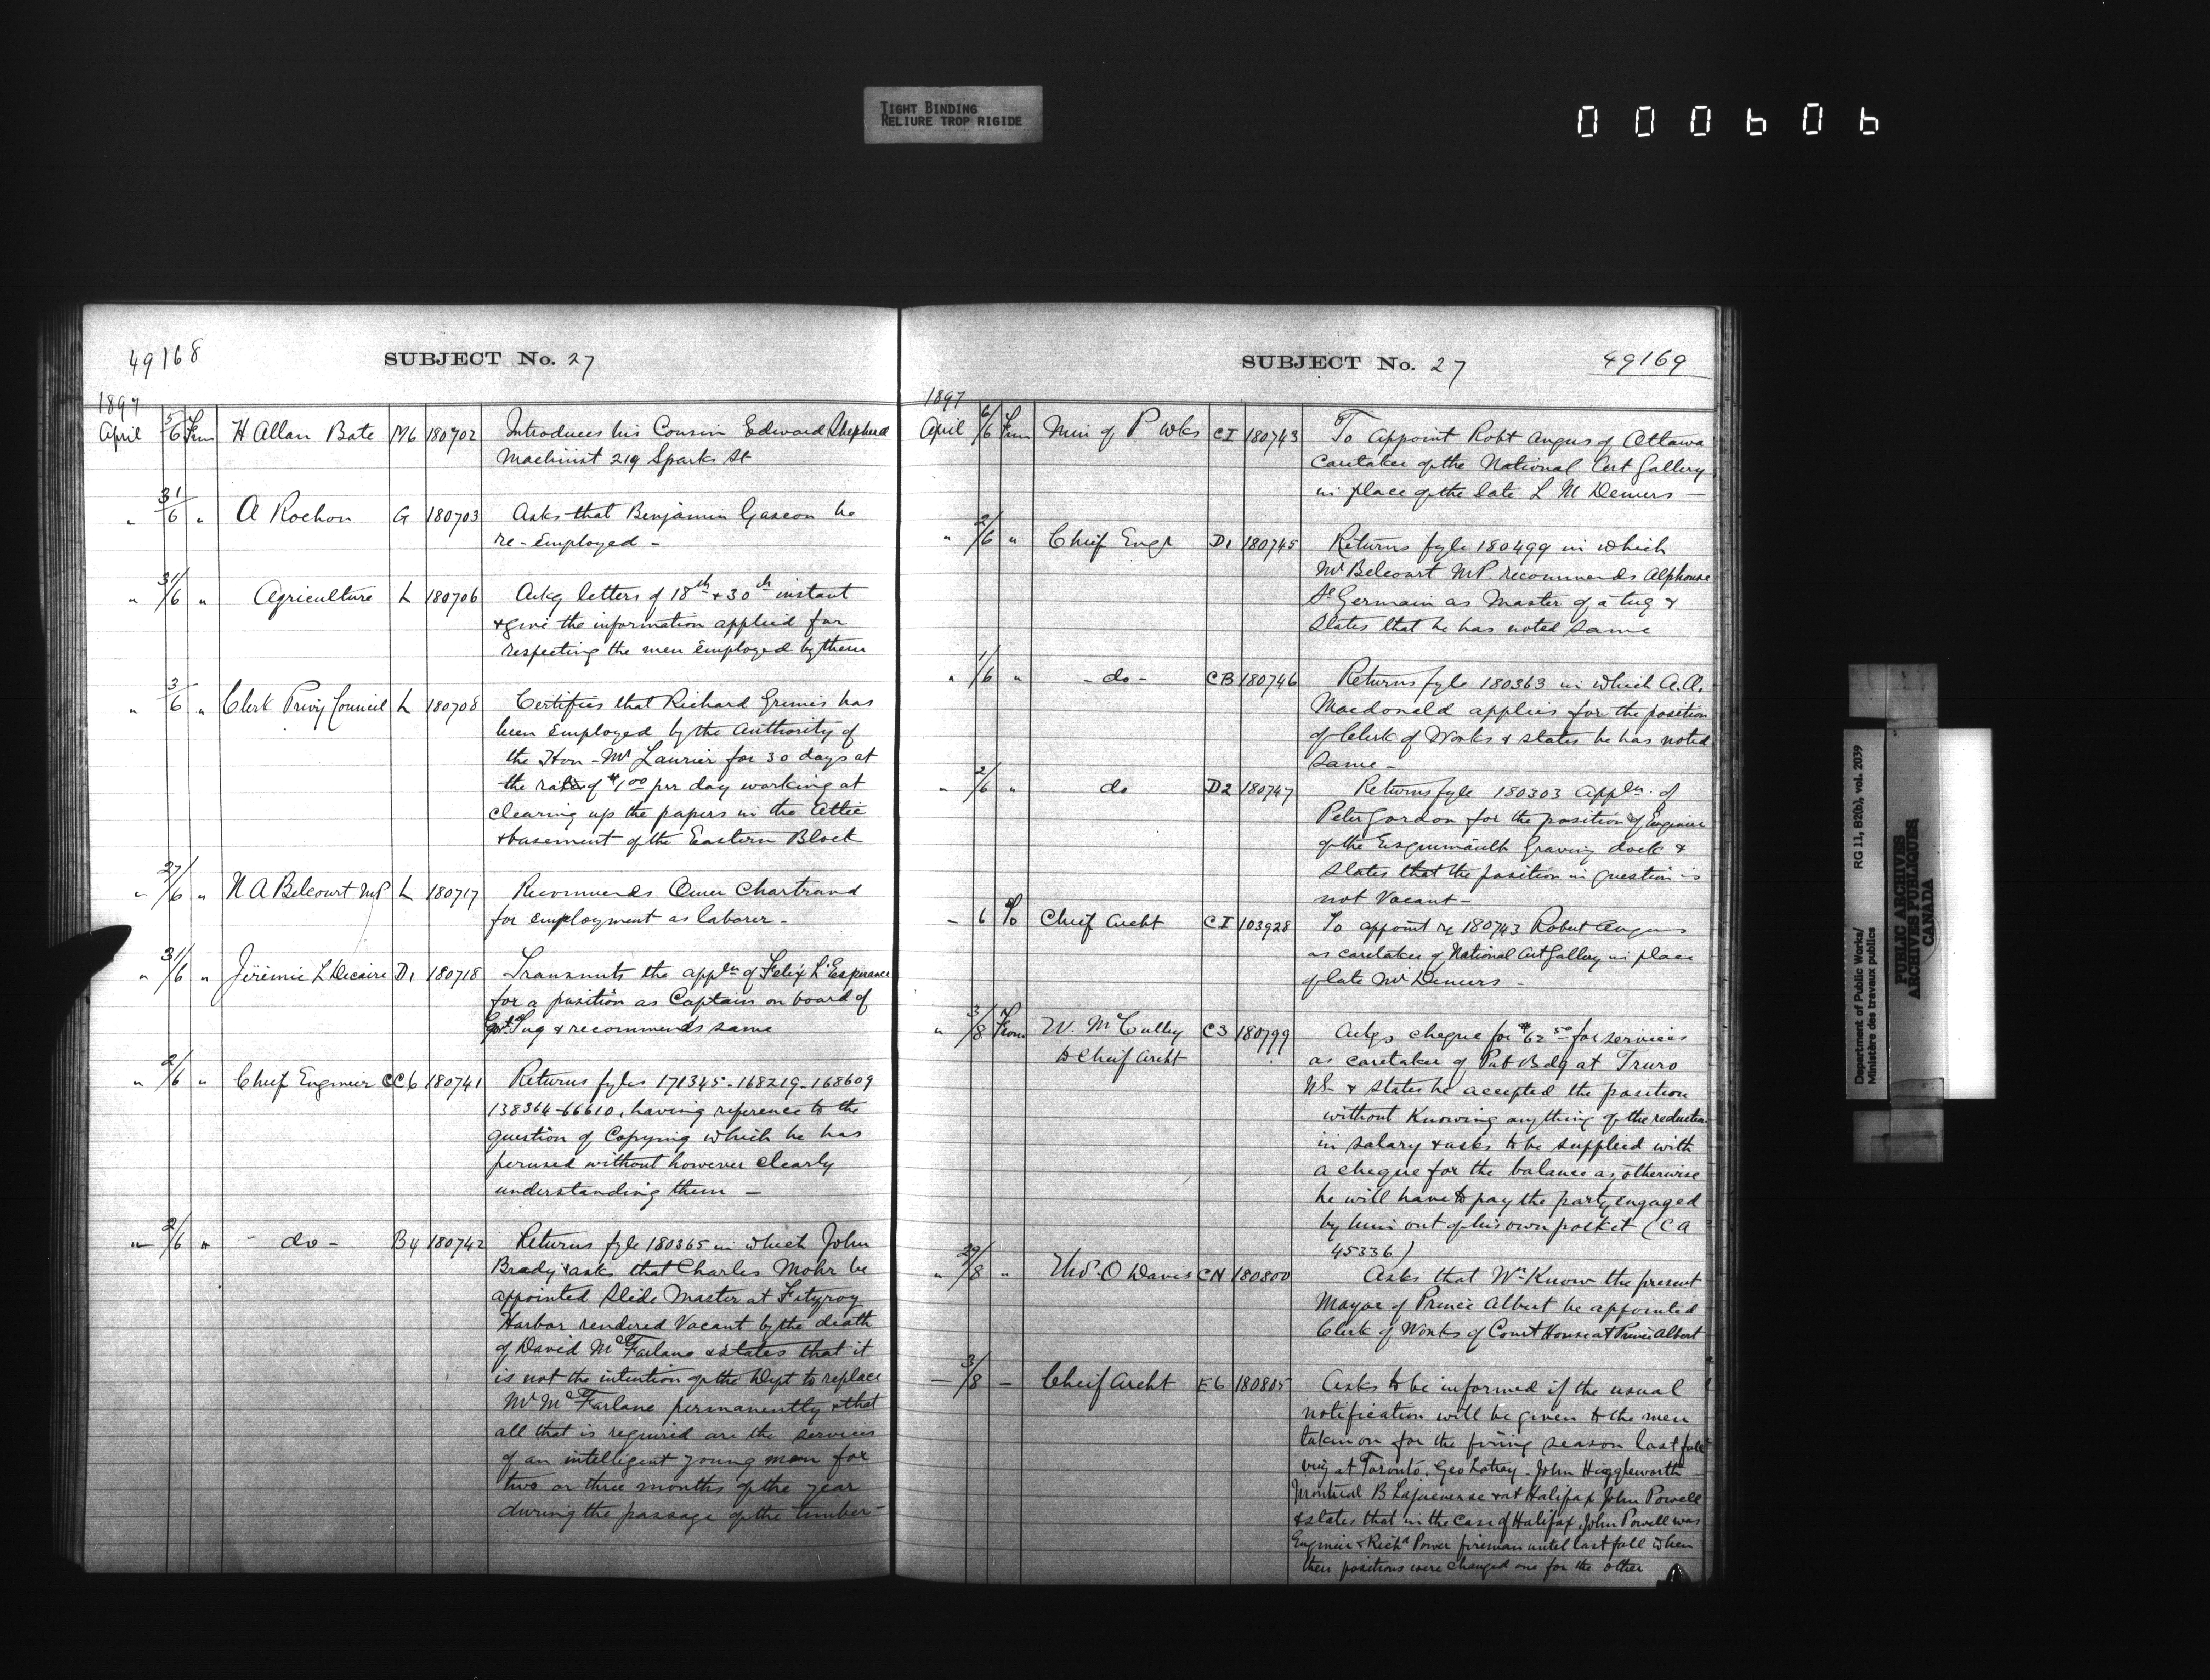 TIGHT BINDING
RELIURE TROP RIGIDE
000606
49168
SUBJECT No. 27
1897
April 5/6 From H Allan Bate M6 180702 Introduces his Cousin Edward Shepherd
Machinist 219 Sparks St
" 31/6 " A Rochon G 180703 Asks that Benjamin Gascon be
re-employed -
" 31/6 " Agriculture L 180706 Ackg letters of 18th & 30th instant
& give the information applied for
respecting the men employed by them
" 3/6 " Clerk Privy Council L 180708 Certifies that Richard Grimes has
been employed by the authority of
the Hon - Mr Laurier for 30 days at
the rate of $1.00 per day working at
clearing up the papers in the Attic
& basement of the Eastern Block
" 27/6 " N A Belcourt MP L 180717 Recommends Omer Chartrand
for employment as laborer -
" 31/6 " Jérémie L Decaire D1 180718 Transmits the appln of Felix L'Esperance
for a position as Captain on board of
Govt Tug & recommends same
" 2/6 " Chief Engineer CC6 180741 Returns fyles 171345-168219-168609
138364-66610, having reference to the
question of Copying which he has
perused without however clearly
understanding them -
" 2/6 " - do - B4 180742 Returns fyle 180365 in which John
Brady asks that Charles Mohr be
appointed Slide Master at Fitzroy
Harbor rendered Vacant by the death
of David McFarlane & states that it
is not the intention of the Dept to replace
Mr McFarlane permanently & that
all that is required are the services
of an intelligent young man for
two or three months of the year
during the passage of the timber -
SUBJECT No. 27
49169
1897
April 6/6 From Min of P Wks CI 180743 To appoint Robt Angus of Ottawa
caretaker of the National Art Gallery
in place of the late L M Demers -
" 2/6 " Chief Engr D1 180745 Returns fyle 180499 in which
Mr Belcourt MP. recommends Alphonse
St Germain as Master of a tug &
States that he has noted same
" 1/6 " - do - CB 180746 Returns fyle 180363 in which A.A.
Macdonald applies for the position
of Clerk of Works & states he has noted
Same -
" 2/6 " do D2 180747 Returns fyle 180303 appln of
Peter Gordon for the position of Engineer
of the Esquimault Graving dock &
States that the position in question is
not Vacant -
- 6 To Chief Archt CI 103928 To appoint re 180743 Robert Angus
as caretaker of National Art Gallery in place
of late Mr Demers -
" 3/8 From W. McCully C3 180799 Ackgs cheque for $62.50 for services
to Chief Archt as caretaker of Pub Bdg at Truro
NS & states he accepted the position
without Knowing anything of the reduction
in salary & asks to be supplied with
a cheque for the balance as, otherwise
he will have to pay the party engaged
by him out of his own pocket (CA
45336)
" 29/8 " Thos. O Davis CN 180800 Asks that Wm Know the present
Mayor of Prince Albert be appointed
Clerk of Works of Court House at Prince Albert
- 3/8 - Chief Archt E6 180805 Asks to be informed if the usual
notification will be given to the men
taken on for the firing season last fall
viz at Toronto, Geo Latray - John Higgleworth -
Montreal B Lajeunesse & at Halifax John Powell
& states that in the case of Halifax, John Powell was
Engineer & Richd Power fireman until last fall when
their positions were changed one for the other
Department of Public Works/ RG 11, B2(b), vol. 2039
Ministère des travaux publics
PUBLIC ARCHIVES
ARCHIVES PUBLIQUES
CANADA